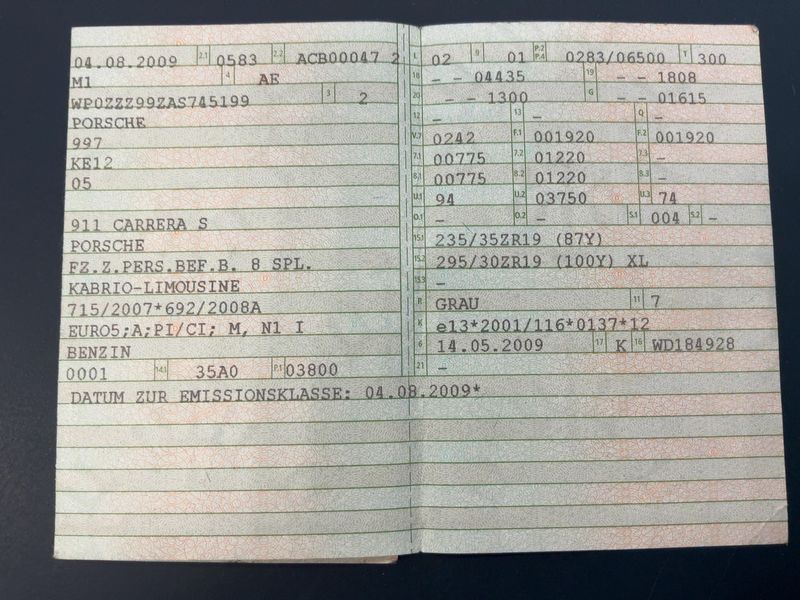 04.08.2009 2.1 0583 2.2 ACB00047 2
M1 4 AE
WP0ZZZ99ZAS745199 3 2
PORSCHE
997
KE12
05
911 CARRERA S
PORSCHE
FZ.Z.PERS.BEF.B. 8 SPL.
KABRIO-LIMOUSINE
715/2007*692/2008A
EURO5;A;PI/CI; M, N1 I
BENZIN
0001 14.1 35A0 P.1 03800
DATUM ZUR EMISSIONSKLASSE: 04.08.2009*
L 02 9 01 P.2 P.4 0283/06500 T 300
18 - - 04435 19 - - 1808
20 - - 1300 G - - 01615
12 - 13 - Q -
V.7 0242 F.1 001920 F.2 001920
7.1 00775 7.2 01220 7.3 -
8.1 00775 8.2 01220 8.3 -
U.1 94 U.2 03750 U.3 74
O.1 - O.2 - S.1 004 S.2 -
15.1 235/35ZR19 (87Y)
15.2 295/30ZR19 (100Y) XL
15.3 -
R GRAU 11 7
K e13*2001/116*0137*12
6 14.05.2009 17 K 16 WD184928
21 -